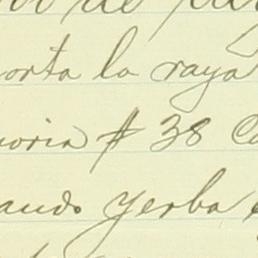 de
orta la raya
noria # 38 Co
ando Yerba